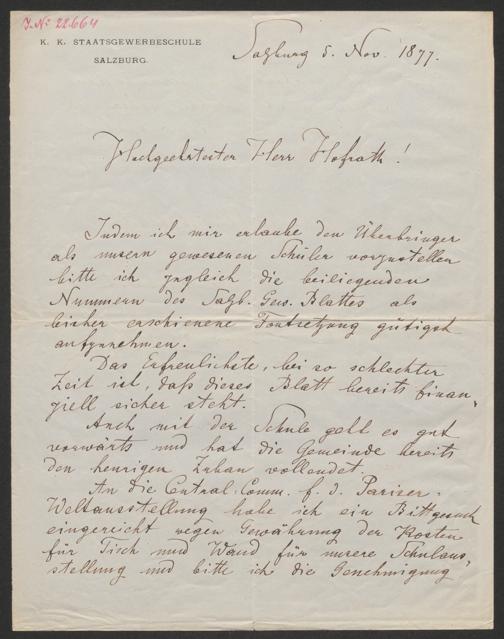 J. N: 22.664
K. K. STAATSGEWERBESCHULE
SALZBURG.
Salzburg 5. Nov. 1877.
Hochgeehrtester Herr Hofrath!
Indem ich mir erlaube den Überbringer
als unsern gewesenen Schüler vorzustellen
bitte ich zugleich die beiliegenden
Nummern des Salzb. Gew. Blattes als
bisher erschienene Fortsetzung gütigst
aufzunehmen.
Das Erfreulichste, bei so schlechter
Zeit ist, daß dieses Blatt bereits finan-
ziell sicher steht.
Auch mit der Schule geht es gut
vorwärts und hat die Gemeinde bereits
den heurigen Zubau vollendet.
An die Central-Comm. f. d. Pariser-
Weltausstellung habe ich ein Bittgesuch
eingereicht wegen Gewährung der Kosten
für Tisch und Wand für unsere Schulaus-
stellung und bitte ich die Genehmigung